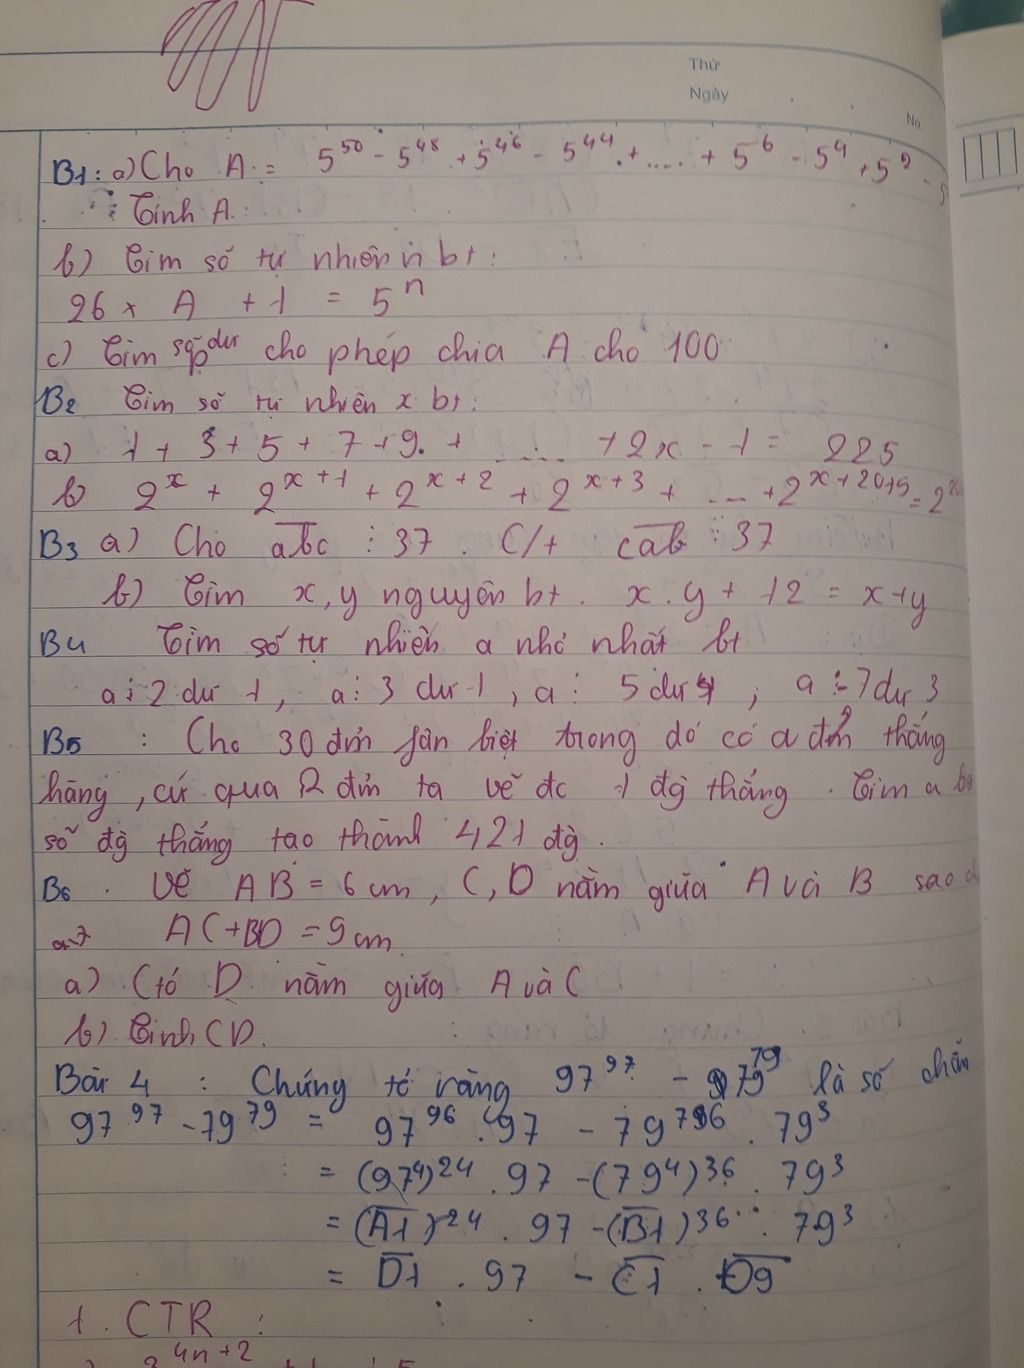 Thứ
Ngày
No
B1: a) Cho A = 5^50 - 5^48 + 5^46 - 5^44 + .... + 5^6 - 5^4 + 5^2 - 5
Tính A.
b) Tìm số tự nhiên n bt:
26 x A + 1 = 5^n
c) Tìm số dư cho phép chia A cho 100
B2 Tìm số tự nhiên x bt:
a) 1 + 3 + 5 + 7 + 9. + ..... + 2x - 1 = 225
b) 2^x + 2^x+1 + 2^x+2 + 2^x+3 + .... + 2^x+2015 = 2
B3 a) Cho abc ⋮ 37. C/t cab ⋮ 37
b) Tìm x, y nguyên bt. x.y + 12 = x+y
B4 Tìm số tự nhiên a nhỏ nhất bt
a : 2 dư 1, a : 3 dư 1, a : 5 dư 4, a : 7 dư 3
B5 : Cho 30 đỉn fân biệt trong đó có a đỉn thẳng
hàng, cứ qua 2 đỉn ta vẽ đc 1 đg thẳng. Tìm a
số đg thẳng tạo thành 421 đg.
B6. Vẽ AB = 6 cm, C, D nằm giữa A và B sao
AC+BD = 9 cm
a) C tỏ D nằm giữa A và C
b) Tính CD.
Bài 4 : Chứng tỏ rằng 97^97 - 79^79 là số chẵn
97^97 - 79^79 = 97^96 . 97 - 79^76 . 79^3
= (97^4)^24 . 97 - (79^4)^36 . 79^3
= (A1)^24 . 97 - (B1)^36 . 79^3
= D1 . 97 - C1 . Đ9
1. CTR :
4n+2